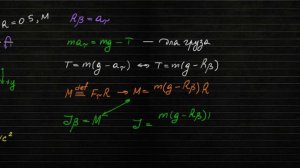 R = 0.5, M
Rβ = aₙ
maₙ = mg − T — для груза
T = m(g − aₙ) ⇔ T = m(g − Rβ)
+y
M def= FₙR → M = m(g − Rβ)R
Jβ = M
J = m(g − Rβ)
с²